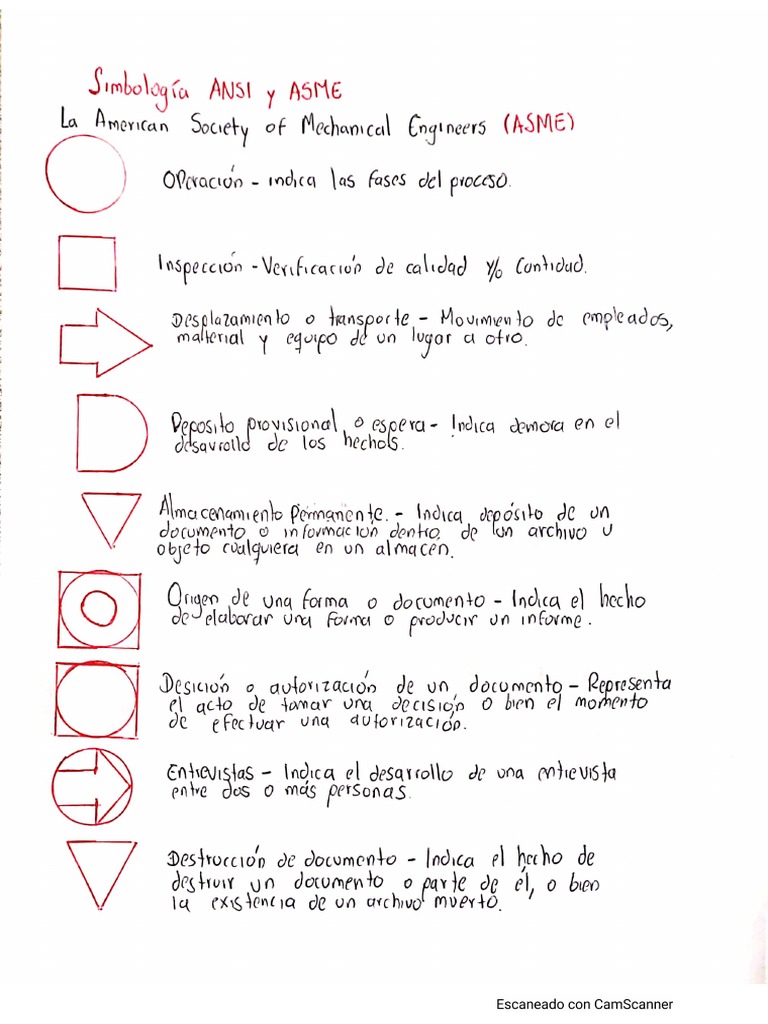 Simbología ANSI y ASME
La American Society of Mechanical Engineers (ASME)
Operación - indica las fases del proceso.
Inspección - Verificación de calidad y/o Cantidad.
Desplazamiento o transporte - Movimiento de empleados,
material y equipo de un lugar a otro.
Deposito provisional o espera - Indica demora en el
desarrollo de los hechos.
Almacenamiento Permanente. - Indica depósito de un
documento o informacion dentro de un archivo u
objeto cualquiera en un almacen.
Origen de una forma o documento - Indica el hecho
de elaborar una forma o producir un informe.
Desición o autorización de un documento - Representa
el acto de tomar una decisión o bien el momento
de efectuar una autorización.
Entrevistas - Indica el desarrollo de una entrevista
entre dos o más personas.
Destrucción de documento - Indica el hecho de
destruir un documento o parte de él, o bien
la existencia de un archivo muerto.
Escaneado con CamScanner